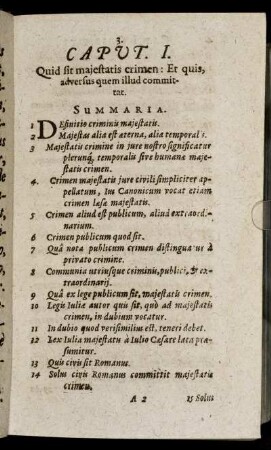 3.
CAPUT. I.
Quid sit majestatis crimen: Et quis,
adversus quem illud commit-
tat.
SUMMARIA.
1 DEfinitio criminis majestatis.
2 Majestas alia est æterna, alia temporalis.
3 Majestatis crimine in jure nostro significatur
plerunq; temporalis sive humana maje-
statis crimen.
4. Crimen majestatis jure civili simpliciter ap-
pellatum, Ius Canonicum vocat etiam
crimen læsæ majestatis.
5 Crimen aliud est publicum, aliud extraordi-
narium.
6 Crimen publicum quod sit.
7 Quâ nota publicum crimen distinguatur à
privato crimine.
8 Communia utriusque criminis, publici, & ex-
traordinarij.
9 Quâ ex lege publicum sit, majestatis crimen.
10 Legis Iuliæ autor quis sit, quò ad majestatis
crimen, in dubium vocatur.
11 In dubio quod verisimilius est, teneri debet.
12 Lex Iulia majestatis à Iulio Cæsare lata præ-
sumitur.
13 Quis civis sit Romanus.
14 Solus civis Romanus committit majestatis
crimen.
A 2 15 Solus